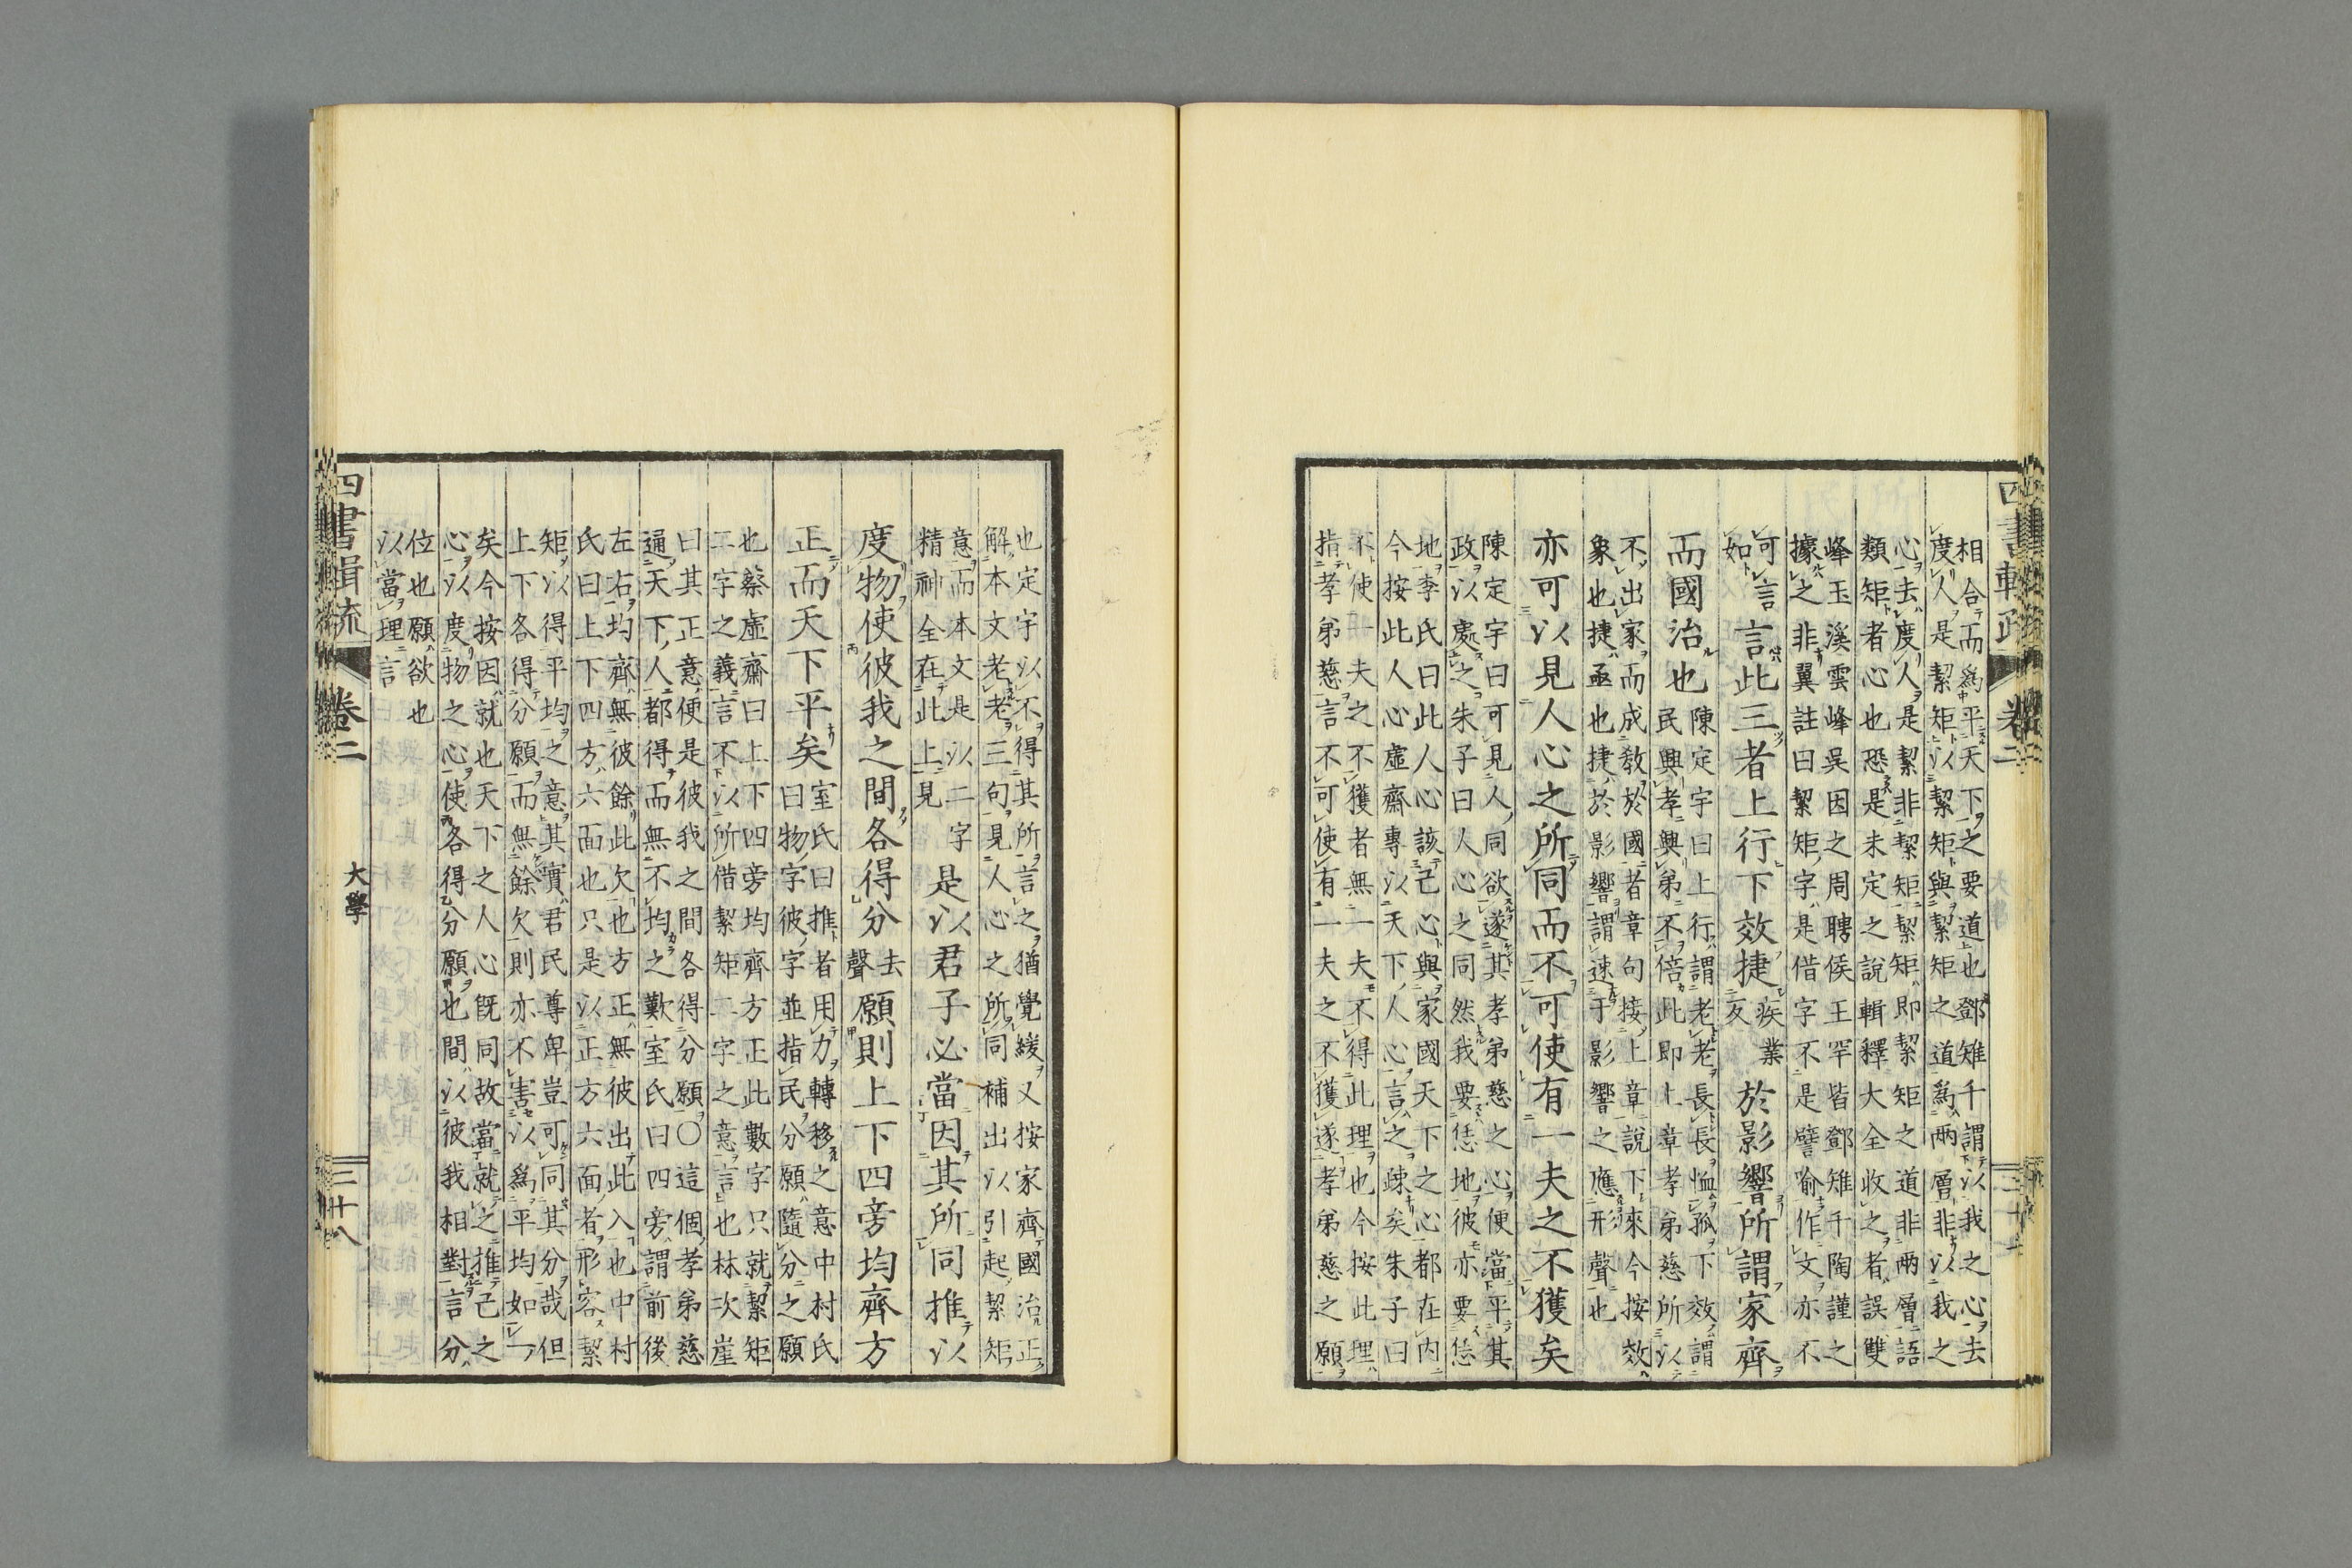 四書輯疏 卷二
相合而爲平天下之要道也鄧雉千謂以我之心去
度人是絜矩以絜矩與絜矩之道爲兩層非以我之
心去度人是絜非絜矩絜矩即絜矩之道非兩層語
類矩者心也恐是未定之說輯釋大全收之者誤雙
峰玉溪雲峰吳因之周聘侯王罕皆鄧雉千陶謹之
據之非翼註曰絜矩字是借字不是譬喻作文亦不
可言
如
言此三者上行下效捷
疾業
反
於影響所謂家齊
而國治也
陳定宇曰上行謂老老長長恤孤下效謂
民興孝興弟不倍此即上章孝弟慈所以
不出家而成敎於國者章句接上章說下來今按效
象也捷亟也捷於影響謂速于影響之應形聲也
亦可以見人心之所同而不可使有一夫之不獲矣
陳定宇曰可見人同欲遂其孝弟慈之心便當平其
政以處之朱子曰人心之同然我要恁地彼亦要恁
地李氏曰此人心該己心與家國天下之心都在内
今按此人心虛齋專以天下人心言之疎矣朱子曰
不使一夫之不獲者無一夫不得此理也今按此理
指孝弟慈言不可使有一夫之不獲遂孝弟慈之願
也定宇以不得其所言之猶覺緩又按家齊國治正
解本文老老三句見人心之所同補出以引起絜矩
意而本文是以二字
精神全在此上見
是以君子必當因其所同推以
度物使彼我之間各得分
去
聲
願則上下四旁均齊方
正而天下平矣
室氏曰推者用力轉移之意中村氏
曰物字彼字並指民分願隨分之願
也蔡虛齋曰上下四旁均齊方正此數字只就絜矩
二字之義言不以所借絜矩二字之意言也林次崖
曰其正意便是彼我之間各得分願〇這個孝弟慈
通天下人都得而無不均之歎室氏曰四旁謂前後
左右均齊無彼餘此欠也方正無彼出此入也中村
氏曰上下四方六面也只是以正方六面者形容絜
矩以得平均之意其實君民尊卑豈可同其分哉但
上下各得分願而無餘欠則亦不害以爲平均如一
矣今按因就也天下之人心既同故當就之推己之
心以度物之心使各得分願也間以彼我相對言分
位也願欲也
以當理言
四書輯疏 卷二 大學 三十八